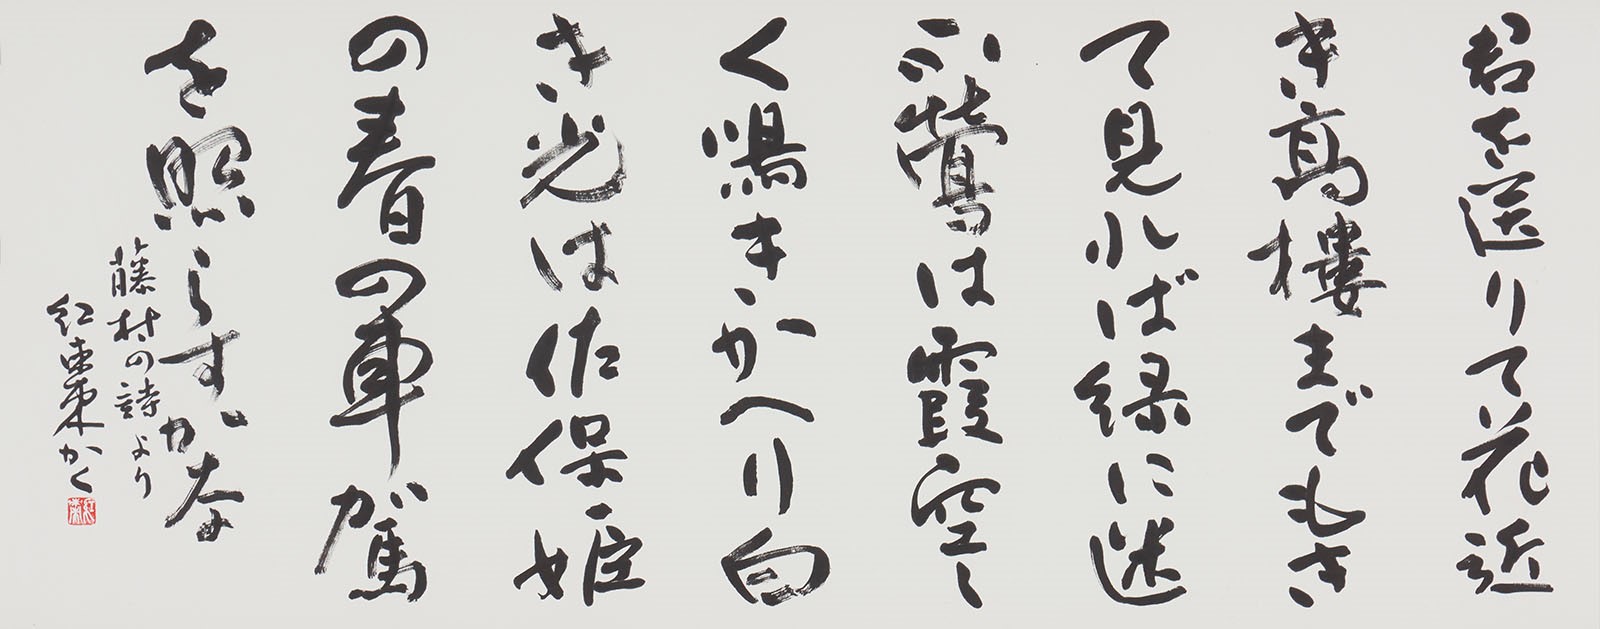 君を送りて花近
き高樓までもき
て見れば緑に迷
ふ鶯は霞空し
く鳴きかへり白
き光は佐保姫
の春の車駕
を照らすかな
藤村の詩より
紅棗かく